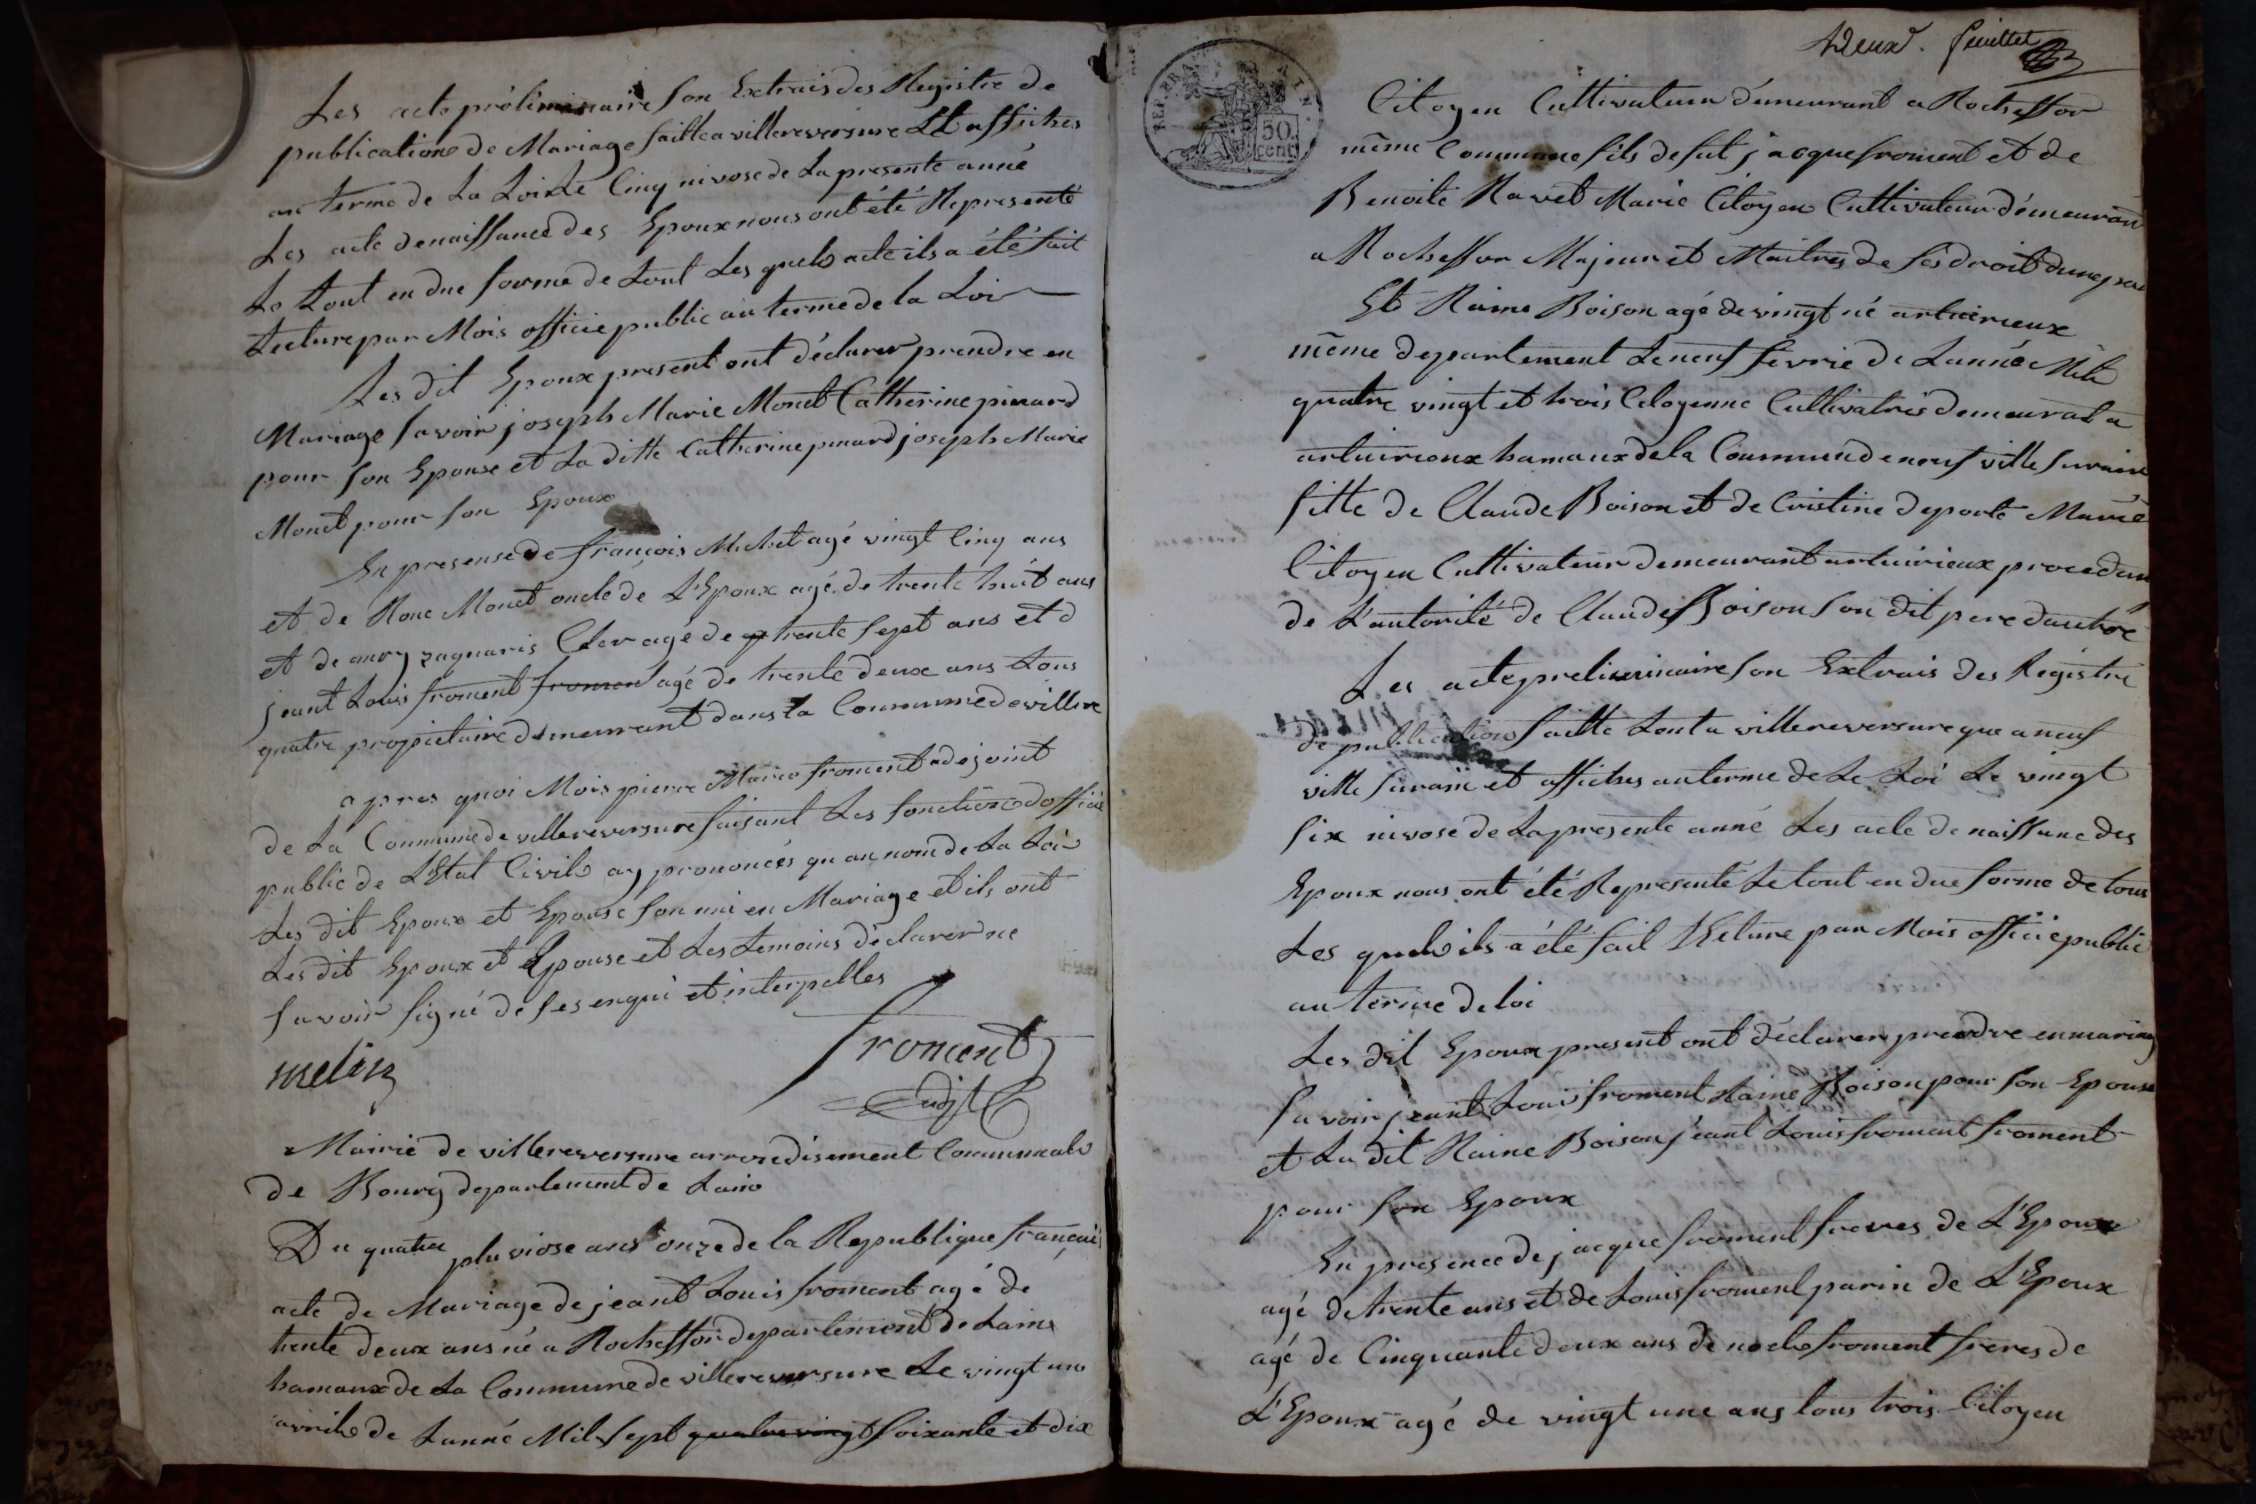 Les acte préliminaire son Extrais des Registre de
publications de Mariage faitte a villereversure Et affiches
au terme de La Loi Le Cinq nivose de La presente anné
Les acte denaissance des Epoux nous ont été Representé
Le tout en due forme de tout Les quels acte ils a été fait
Lecture par Mois officié public au terme de la Loi
Les dit Epoux present ont déclarer prendre en
Mariage savoir joseph Marie Monet Catherine pinard
pour son Epouse et La ditte Catherine pinard joseph Marie
Monet pour son Epoux
En presense de françois Michet agé vingt Cinq ans
et de Monet oncle de L'Epoux agé de trente huit ans
et de Clerc agé de trente sept ans et d
jeant Louis froment froment agé de trente deux ans tous
quatre propietaire demeurant dans La Commune de villere
apres quoi Mois pierre Marie froment adejoint
de La Commune de villereversure faisant Les fonctions d'officié
public de L'Etat Civils ay prononcés qu au nom de La Loi
Les dit Epoux et Epouse son uni en Mariage et ils ont
Les dit Epoux et Epouse et Les temoins déclarer ne
savoir signé de ses enquis et interpelles
melin froment
adjt
Mairie de villereversure arrondisement Communals
de Bourg departement de Lain
Du quatre pluviose ans onze de la Republique français
acte de Mariage de jeant Louis froment agé de
trente deux ans né a Rocheffor departement de Lains
hamaux de La Commune de villereversure Le vingt un
avrils de Lanné Mil sept quatre vingt soixante et dix
Deux. feuillet
REP. FRA
50
cent.
Citoyen Cultivateur demeurant a Rocheffor
même Commune fils de fut jacque froment et de
Benoite Ravet Marie Citoyen Cultivateur demeurant
a Rocheffor Majeur et Maitres de ses droit dune par
Et Raine Boison agé de vingt né artuirieux
même departement Le neuf fevrié de Lannée Mil
quatre vingt et trois Citoyenne Cultivatris demeurat a
artuirieux hamaux de la Commun de neuf ville surain
fille de Claude Boison et de Cristine deporte Marié
Citoyen Cultivateur demeurant artuirieux procedan
de L'autorité de Claude Boison son dit pere dautre
Les acte preliminaire son Extrais des Régistre
de publication faitte tont a villereversure que a neuf
ville surain et affiches au terme de Le Loi Le vingt
six nivose de La presente anné Les acte de naissane des
Epoux nous ont été Representé Le tout en due forme de tous
Les quels ils a été fait Lecture par Mois officié public
au terme de loi
Les dit Epoux present ont déclarer prendre en mariag
savoir jeant Louis froment Raine Boison pour son Epouse
et La dit Raine Boison jeant Louis froment froment
pour son Epoux
En presence de jacque froment freres de L'Epoux
agé de trente ans et de Louis froment parin de L'Epoux
agé de Cinquante deux ans de noels froment freres de
L'Epoux agé de vingt une ans tous trois Citoyen